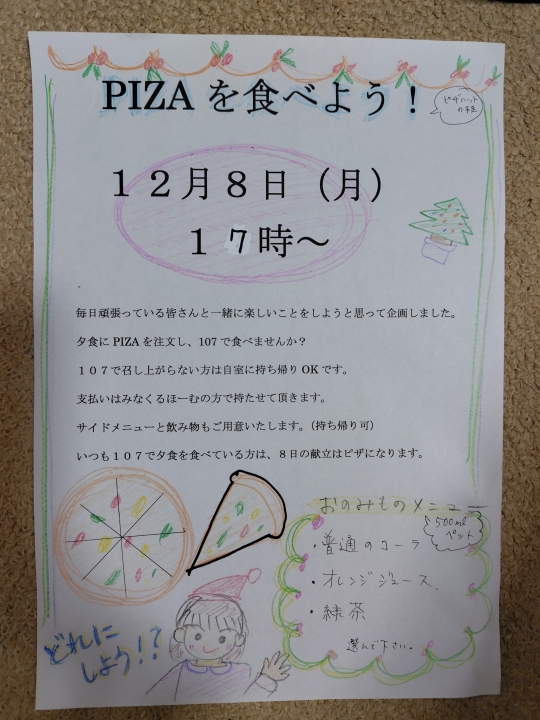 PIZA を食べよう！
ピザハットの予定
１２月８日（月）
１７時～
毎日頑張っている皆さんと一緒に楽しいことをしようと思って企画しました。
夕食に PIZA を注文し、107 で食べませんか？
１０７で召し上がらない方は自室に持ち帰り OK です。
支払いはみなくるほーむの方で持たせて頂きます。
サイドメニューと飲み物もご用意いたします。（持ち帰り可）
いつも１０７で夕食を食べている方は、８日の献立はピザになります。
おのみものメニュー
500ml
ペット
・普通のコーラ
・オレンジジュース、
・緑茶
選んで下さい。
どれに
しよう！？